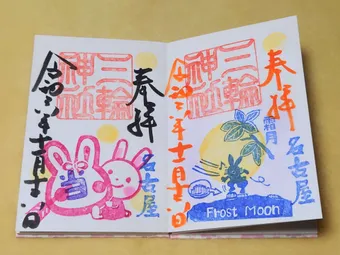 奉拝
名古屋
三輪
神社
令和六年十一月十一日
奉拝
名古屋
霜月
三輪
神社
令和六年十一月十一日
Frost Moon